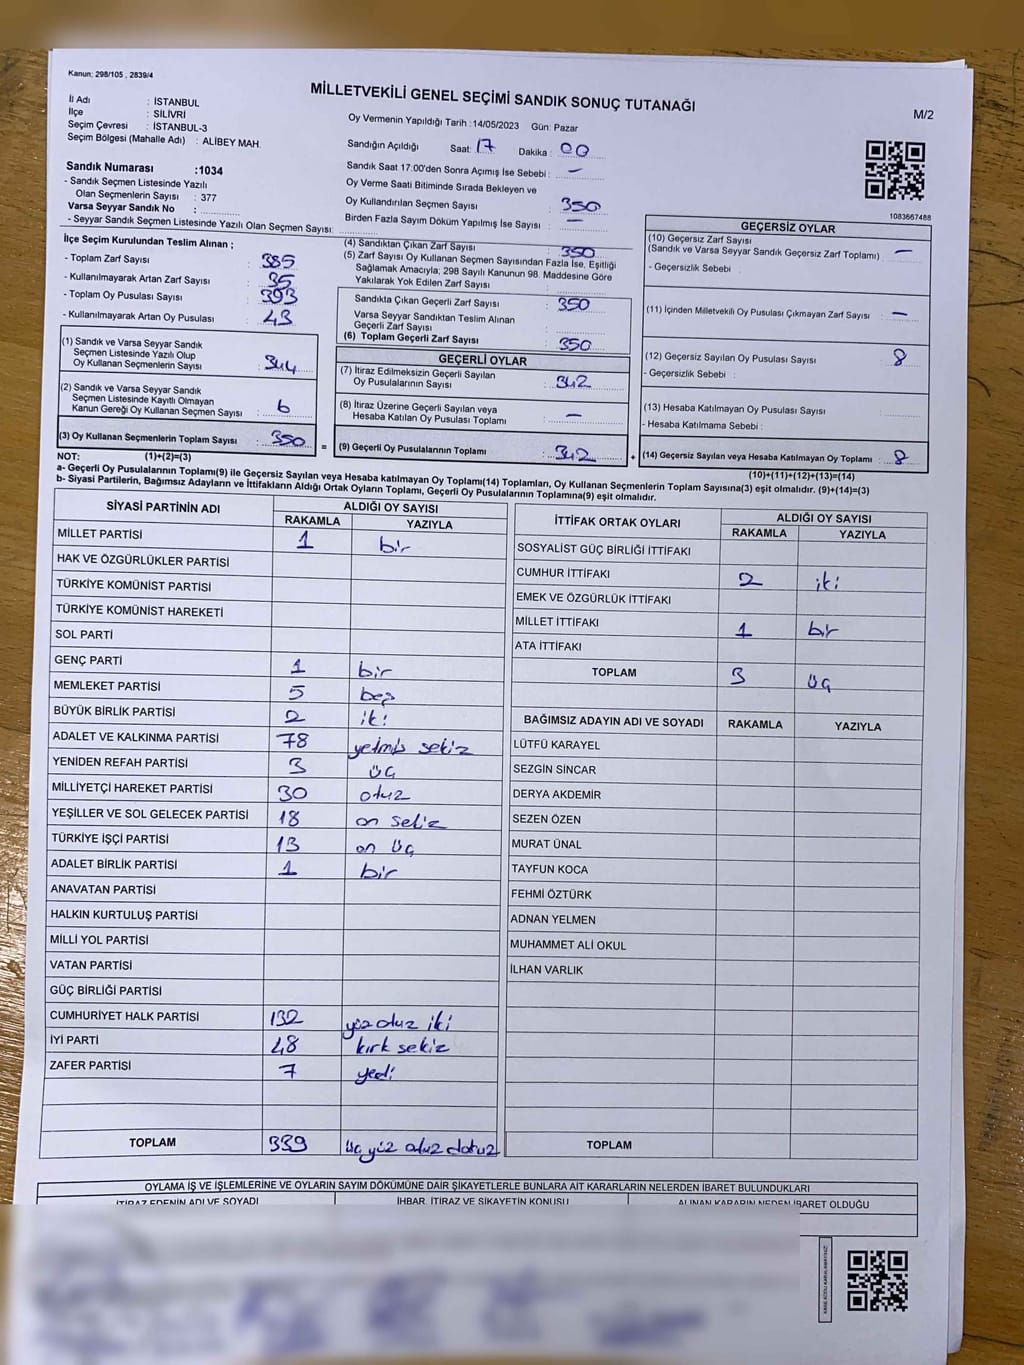 Kanun: 298/105 , 2839/4
MİLLETVEKİLİ GENEL SEÇİMİ SANDIK SONUÇ TUTANAĞI
M/2
İl Adı : İSTANBUL
İlçe : SİLİVRİ
Seçim Çevresi : İSTANBUL-3
Seçim Bölgesi (Mahalle Adı) : ALİBEY MAH.
Sandık Numarası :1034
- Sandık Seçmen Listesinde Yazılı
Olan Seçmenlerin Sayısı : 377
Varsa Seyyar Sandık No :
- Seyyar Sandık Seçmen Listesinde Yazılı Olan Seçmen Sayısı:
Oy Vermenin Yapıldığı Tarih :14/05/2023 Gün: Pazar
Sandığın Açıldığı Saat: 17 Dakika : 00
Sandık Saat 17.00'den Sonra Açılmış İse Sebebi : —
Oy Verme Saati Bitiminde Sırada Bekleyen ve
Oy Kullandırılan Seçmen Sayısı : 350
Birden Fazla Sayım Döküm Yapılmış İse Sayısı : —
1083667488
İlçe Seçim Kurulundan Teslim Alınan ;
- Toplam Zarf Sayısı : 385
- Kullanılmayarak Artan Zarf Sayısı : 35
- Toplam Oy Pusulası Sayısı : 393
- Kullanılmayarak Artan Oy Pusulası : 43
(1) Sandık ve Varsa Seyyar Sandık
Seçmen Listesinde Yazılı Olup
Oy Kullanan Seçmenlerin Sayısı : 344
(2) Sandık ve Varsa Seyyar Sandık
Seçmen Listesinde Kayıtlı Olmayan
Kanun Gereği Oy Kullanan Seçmen Sayısı : 6
(3) Oy Kullanan Seçmenlerin Toplam Sayısı : 350 =
(4) Sandıktan Çıkan Zarf Sayısı : 350
(5) Zarf Sayısı Oy Kullanan Seçmen Sayısından Fazla İse, Eşitliği
Sağlamak Amacıyla; 298 Sayılı Kanunun 98. Maddesine Göre
Yakılarak Yok Edilen Zarf Sayısı :
Sandıkta Çıkan Geçerli Zarf Sayısı : 350
Varsa Seyyar Sandıktan Teslim Alınan
Geçerli Zarf Sayısı :
(6) Toplam Geçerli Zarf Sayısı : 350
GEÇERLİ OYLAR
(7) İtiraz Edilmeksizin Geçerli Sayılan
Oy Pusulalarının Sayısı : 342
(8) İtiraz Üzerine Geçerli Sayılan veya
Hesaba Katılan Oy Pusulası Toplamı : —
(9) Geçerli Oy Pusulalarının Toplamı : 342 +
GEÇERSİZ OYLAR
(10) Geçersiz Zarf Sayısı
(Sandık ve Varsa Seyyar Sandık Geçersiz Zarf Toplamı) : —
- Geçersizlik Sebebi :
(11) İçinden Milletvekili Oy Pusulası Çıkmayan Zarf Sayısı : —
(12) Geçersiz Sayılan Oy Pusulası Sayısı : 8
- Geçersizlik Sebebi :
(13) Hesaba Katılmayan Oy Pusulası Sayısı :
- Hesaba Katılmama Sebebi :
(14) Geçersiz Sayılan veya Hesaba Katılmayan Oy Toplamı : 8
NOT: (1)+(2)=(3) (10)+(11)+(12)+(13)=(14)
a- Geçerli Oy Pusulalarının Toplamı(9) ile Geçersiz Sayılan veya Hesaba Katılmayan Oy Toplamı(14) Toplamları, Oy Kullanan Seçmenlerin Toplam Sayısına(3) eşit olmalıdır. (9)+(14)=(3)
b- Siyasi Partilerin, Bağımsız Adayların ve İttifakların Aldığı Ortak Oyların Toplamı, Geçerli Oy Pusulalarının Toplamına(9) eşit olmalıdır.
SİYASİ PARTİNİN ADI ALDIĞI OY SAYISI
RAKAMLA YAZIYLA
MİLLET PARTİSİ 1 bir
HAK VE ÖZGÜRLÜKLER PARTİSİ
TÜRKİYE KOMÜNİST PARTİSİ
TÜRKİYE KOMÜNİST HAREKETİ
SOL PARTİ
GENÇ PARTİ 1 bir
MEMLEKET PARTİSİ 5 beş
BÜYÜK BİRLİK PARTİSİ 2 iki
ADALET VE KALKINMA PARTİSİ 78 yetmiş sekiz
YENİDEN REFAH PARTİSİ 3 üç
MİLLİYETÇİ HAREKET PARTİSİ 30 otuz
YEŞİLLER VE SOL GELECEK PARTİSİ 18 on sekiz
TÜRKİYE İŞÇİ PARTİSİ 13 on üç
ADALET BİRLİK PARTİSİ 1 bir
ANAVATAN PARTİSİ
HALKIN KURTULUŞ PARTİSİ
MİLLİ YOL PARTİSİ
VATAN PARTİSİ
GÜÇ BİRLİĞİ PARTİSİ
CUMHURİYET HALK PARTİSİ 132 yüz otuz iki
İYİ PARTİ 48 kırk sekiz
ZAFER PARTİSİ 7 yedi
TOPLAM 339 üç yüz otuz dokuz
İTTİFAK ORTAK OYLARI ALDIĞI OY SAYISI
RAKAMLA YAZIYLA
SOSYALİST GÜÇ BİRLİĞİ İTTİFAKI
CUMHUR İTTİFAKI 2 iki
EMEK VE ÖZGÜRLÜK İTTİFAKI
MİLLET İTTİFAKI 1 bir
ATA İTTİFAKI
TOPLAM 3 üç
BAĞIMSIZ ADAYIN ADI VE SOYADI RAKAMLA YAZIYLA
LÜTFÜ KARAYEL
SEZGİN SİNCAR
DERYA AKDEMİR
SEZEN ÖZEN
MURAT ÜNAL
TAYFUN KOCA
FEHMİ ÖZTÜRK
ADNAN YELMEN
MUHAMMET ALİ OKUL
İLHAN VARLIK
TOPLAM
OYLAMA İŞ VE İŞLEMLERİNE VE OYLARIN SAYIM DÖKÜMÜNE DAİR ŞİKAYETLERLE BUNLARA AİT KARARLARIN NELERDEN İBARET BULUNDUKLARI
İTİRAZ EDENİN ADI VE SOYADI İHBAR, İTİRAZ VE ŞİKAYETİN KONUSU ALINAN KARARIN NEDEN İBARET OLDUĞU